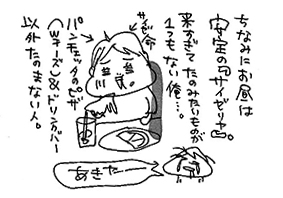 ちなみにお昼は
安定の『サイゼリア』。
来すぎてたのみたいものが
1つもない俺…。
サイゼ命
パンチェッタのピザ
(Wチーズ)&ドリンクバー
以外たのまない人。
あきたー